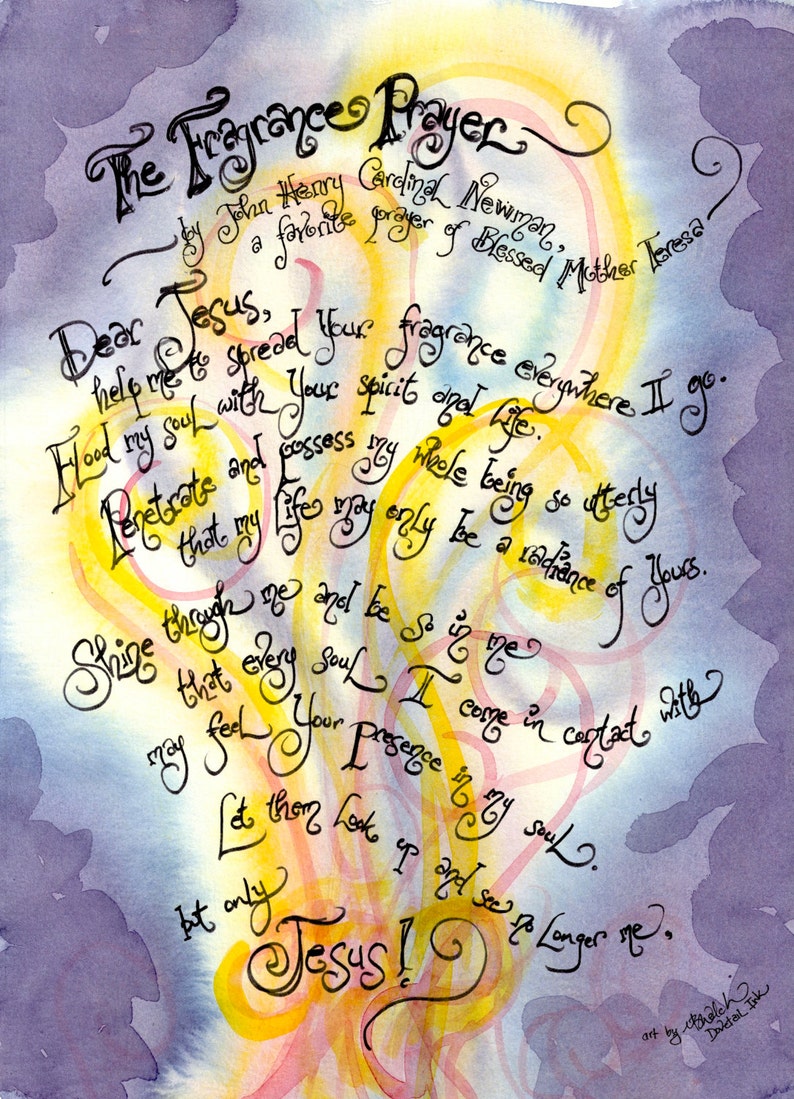 The Fragrance Prayer
by John Henry Cardinal Newman,
a favorite prayer of Blessed Mother Teresa
Dear Jesus,
help me to spread Your fragrance everywhere I go.
Flood my soul with Your spirit and life.
Penetrate and possess my whole being so utterly
that my life may only be a radiance of Yours.
Shine through me and be so in me
that every soul I come in contact with
may feel Your Presence in my soul.
Let them look up and see no longer me,
but only
Jesus!
art by
Dovetail Ink